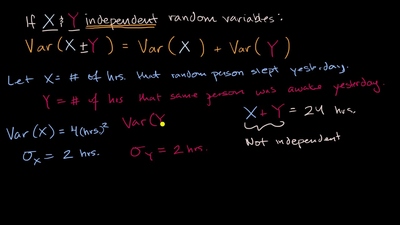 If X & Y independent random variables:
Var(X ± Y) = Var(X) + Var(Y)
Let X = # of hrs. that random person slept yesterday.
Y = # of hrs that same person was awake yesterday.
X + Y = 24 hrs.
Not independent
Var(X) = 4(hrs.)²
Var(Y
σX = 2 hrs.
σY = 2 hrs.